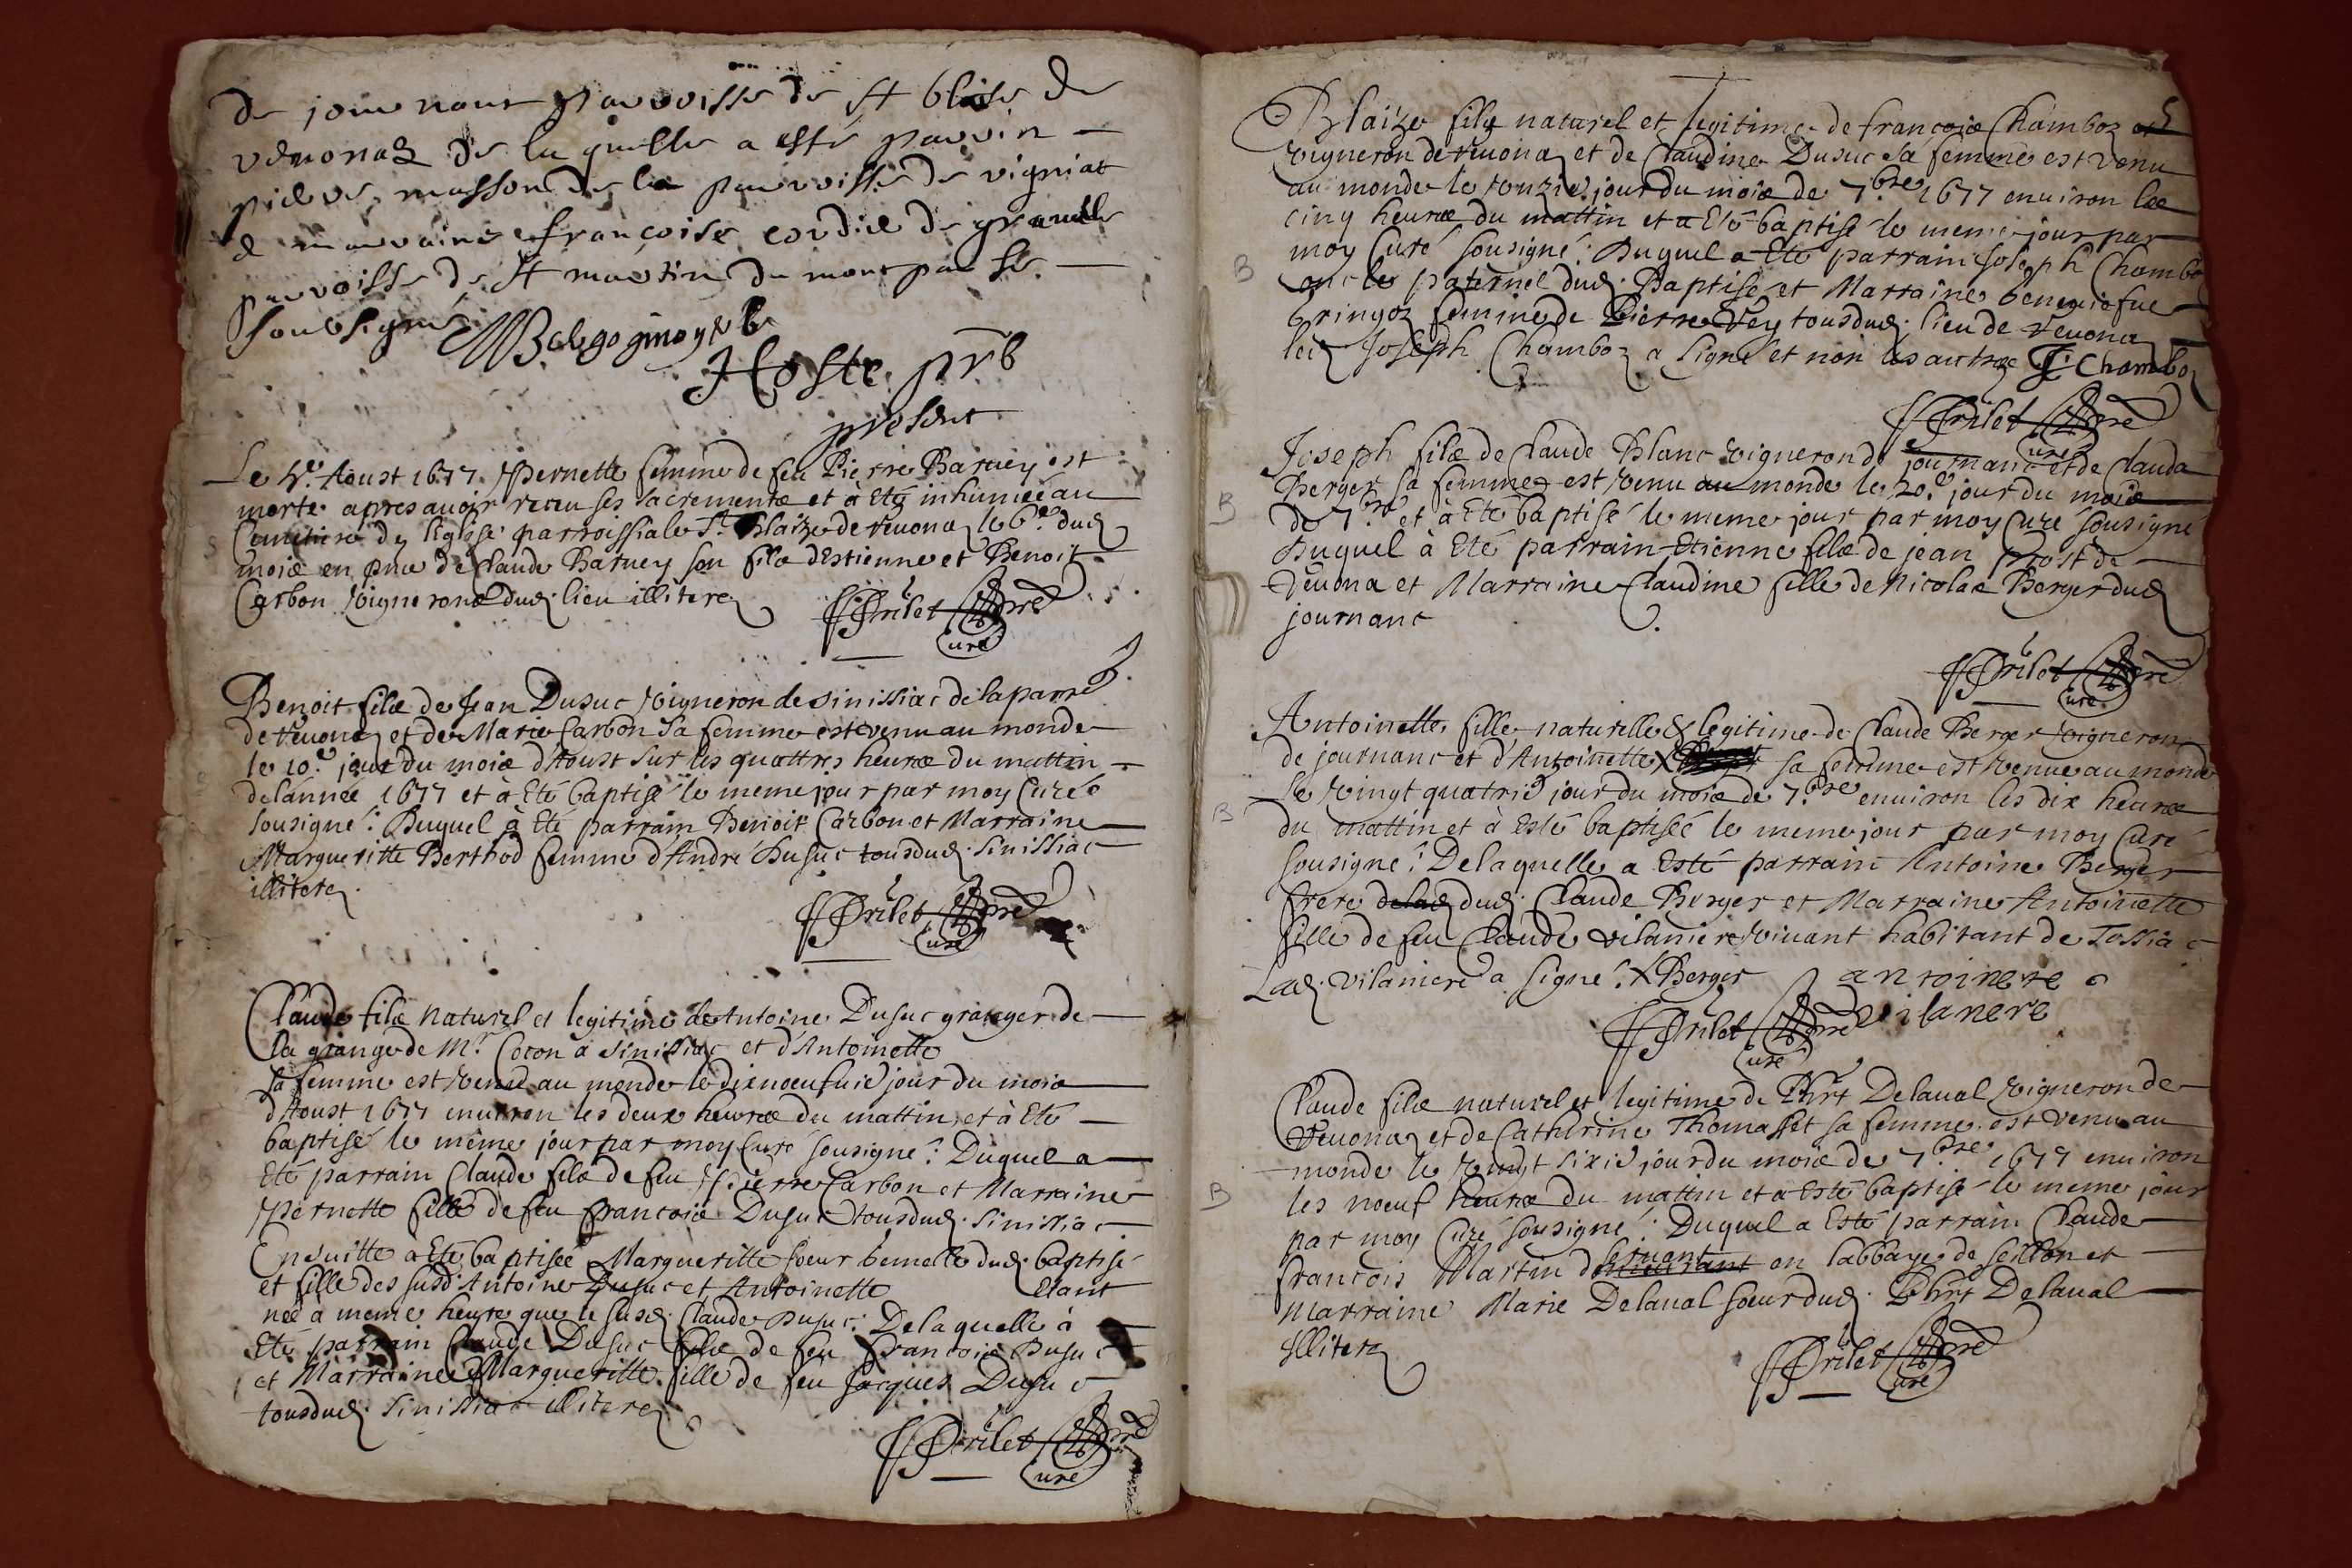 de journant parroisse de st blaise de
vevonaz de la quelle a esté parrin
pierre masson de la parroisse de vigniat
& marraine françoise cordier de granelle
parroisse de st martin du mont par le
soubsigné
Hoste prb
present
Le 5.e Aoust 1677. Pernette femme de feu Pierre Baruey est
morte apres auoir receu ses sacrementz et à Eté inhumée au
Cimitiere de l'Eglise parrossiale St Blaize de Veuonaz le 6.e dud
mois en pnce de Claude Baruey son filz d'Estienne et Benoit
Carbon Vigneronz dud. lieu illiterez
J Prilet pre
Curé
Benoit filz de Jean Dusuc Vigneron de Sinissiac de la parre
de Veuonaz et de Marie Carbon sa femme est venu au monde
le 10.e jour du mois d'Aoust sur les quattres heures du mattin
de l'année 1677 et à Eté baptisé le meme jour par moy Curé
sousigné: Duquel à Eté parrain Benoit Carbon et Marraine
Margueritte Berthod femme d'André Dusuc tous dud. Sinissiac
illiterez.
J Prilet pre
Curé
Claude filz naturel et legitime de Antoine Dusuc granger de
la grange de Mr. Cocon a Sinissiac et d'Antoinette
sa femme est Venu au monde le dixnoeufuie jour du mois
d'Aoust 1677 enuiron les deux heures du mattin et à Eté
baptisé le même jour par moy Curé sousigné: Duquel a
Eté parrain Claude filz de feu Pierre Carbon et Marraine
Pernette fille de feu francois Dusuc tous dud. Sinissiac
Ensuitte à Eté baptisée Margueritte soeur bemelle dud. baptisé
et fille des susd. Antoine Dusuc et Antoinette Etant
née à meme heure que le susd. Claude Dusuc: De laquelle à
Eté parrain Claude Dusuc filz de feu francois Dusuc
et Marraine Margueritte fille de feu Jacques Dusuc
tous dud. Sinissiac illiterez
J Prilet pre
Curé
5
Blaize filz naturel et legitime de françois Chamboz
Vigneron de Veuonaz et de Claudine Dusuc sa femme est venu
au monde le onzie. jour du mois de 7.bre 1677 enuiron les
cinq heures du mattin et a Eté baptisé le meme jour par
moy Curé sousigné: Duquel a Eté parrain Joseph Chamboz
B
oncle paternel dud. Baptisé et Marraine
Gringoz femme de Pierre Vey tous dud. lieu de Veuonaz
led. Joseph Chamboz a signé et non les autres J: Chamboz
J Prilet pre
Curé
Joseph filz de Claude Blanc Vigneron de journanc et de Clauda
Berger sa femme est Venu au monde le 20.e jour du mois
B
de 7.bre et à Eté baptisé le meme jour par moy Curé sousigné
Duquel à Eté parrain Etienne filz de jean Prost de
Veuona et Marraine Claudine fille de Nicolas Berger dud
journanc
J Prilet pre
Curé
Antoinette fille naturelle & legitime de Claude Berger Vigneron
de journanc et d'Antoinette X sa femme est Venue au monde
le Vingt quatrie jour du mois de 7.bre enuiron les dix heures
B
du mattin et à Esté baptisée le meme jour par moy Curé
sousigné: De laquelle a Esté parrain Antoine Berger
frere de lad dud. Claude Berger et Marraine Antoinette
fille de feu Claude Vilaniere Viuant habitant de Tossiac
Lad. Vilaniere a signé. X Berger antoinete
vilanere
J Prilet pre
Curé
Claude filz naturel et legitime de Phirt Delaual Vigneron de
Veuonaz et de Catherine Thomasset sa femme est Venu au
monde le Vingt sixie jour du mois de 7.bre 1677 enuiron
B
les noeuf heures du mattin et a Esté baptisé le meme jour
par moy Curé sousigné: Duquel a Esté parrain Claude
seruant
françois Martin en labbaye de seillon et
Marraine Marie Delaual soeur dud. Phirt Delaual
Illiterez
J Prilet pre
Curé